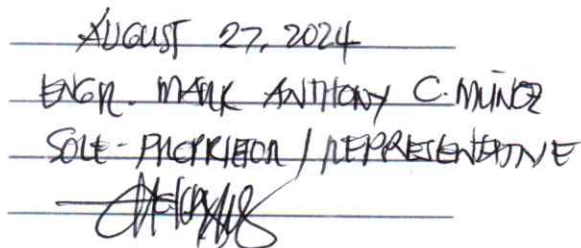 AUGUST 27, 2024
ENGR. MARK ANTHONY C. MUÑOZ
SOLE-PROPRIETOR / REPRESENTATIVE